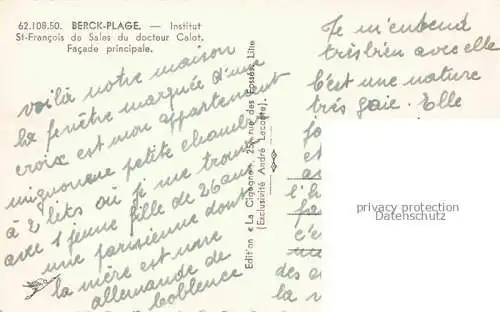 62.108.50. BERCK-PLAGE. — Institut
St-François de Sales du docteur Calot.
Façade principale.
voilà notre maison
la fenêtre marquée d'une
croix est mon appartement
mignonne petite chambre
à 2 lits où je me trouve
avec 1 jeune fille de 26 ans
une parisienne dont
la mère est une
allemande de
Coblence
Edition « La Cigogne », 25, rue des Fossés, Lille
(Exclusivité André Lecomte)
Je m'entend
très bien avec elle
C'est une nature
très gaie. Elle
l'h
c'e
des a
la
privacy protection
Datenschutz